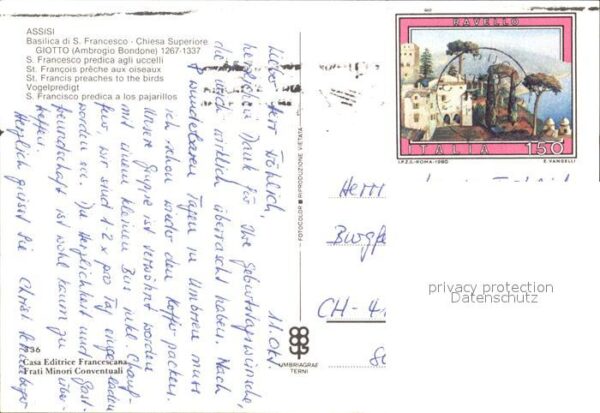 ASSISI
Basilica di S. Francesco - Chiesa Superiore
GIOTTO (Ambrogio Bondone) 1267-1337
S. Francesco predica agli uccelli
St. François prêche aux oiseaux
St. Francis preaches to the birds
Vogelpredigt
S. Francisco predica a los pajarillos
11. Okt
Lieber Herr Fröhlich,
herzlichen Dank für Ihre Geburtstagswünsche,
die mich wirklich überrascht haben. Nach
wunderbaren Tagen in Umbrien muss
ich schon wieder den Koffer packen.
Unsere Gruppe ist verwöhnt worden
mit einem kleinen Bus inkl. Chauf-
feur, wir sind 1-2 x pro Tag eingeladen
worden etc. Die Herzlichkeit und Gast-
freundschaft ist wohl kaum zu über-
treffen.
Herzlich grüsst Sie Christ
236
Casa Editrice Francescana
Frati Minori Conventuali
FOTOCOLOR ■ RIPRODUZIONE VIETATA
UMBRIAGRAF
TERNI
RAVELLO
ITALIA 150
I.P.Z.S.-ROMA-1980 E. VANGELLI
Herrn
CH-4
privacy protection
Datenschutz